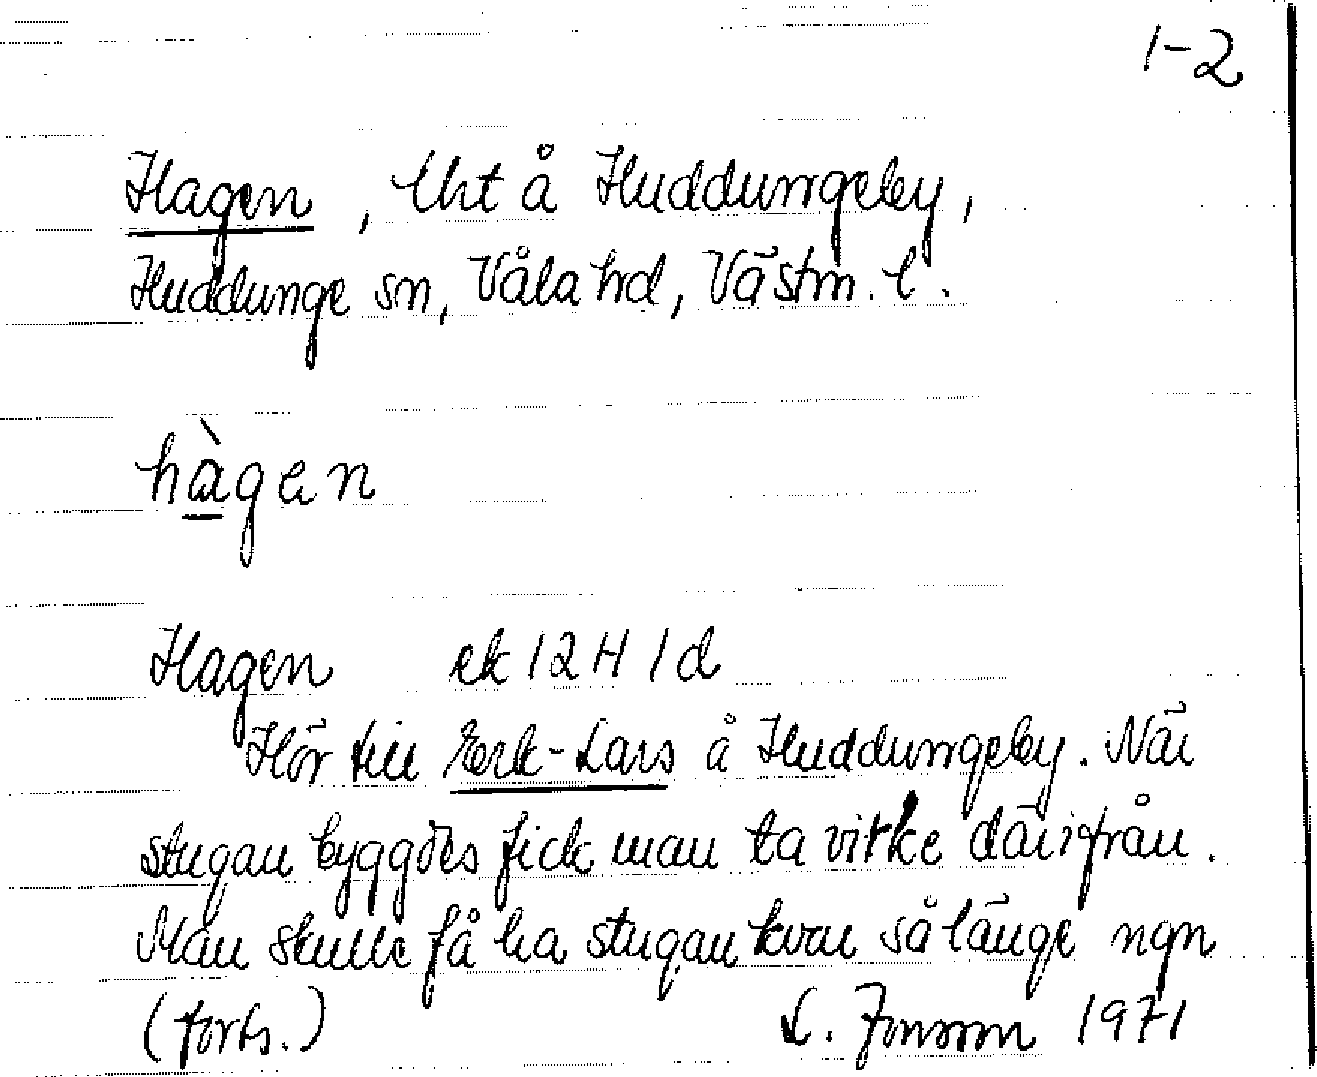 1-2
Hagen, lht å Huddungeby,
Huddunge sn, Våla hd, Västm. l.
hàgen
Hagen ek 12H 1d
Hör till Erk-Lars å Huddungeby. När
stugan byggdes fick man ta virke därifrån.
Man skulle få ha stugan kvar så länge ngn
(forts.) L. Jonsson 1971